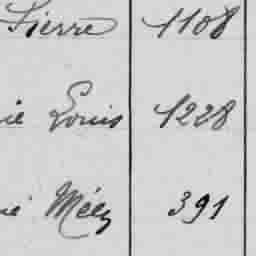 Pierre 1108
ie Louis 1228
é Méez 391